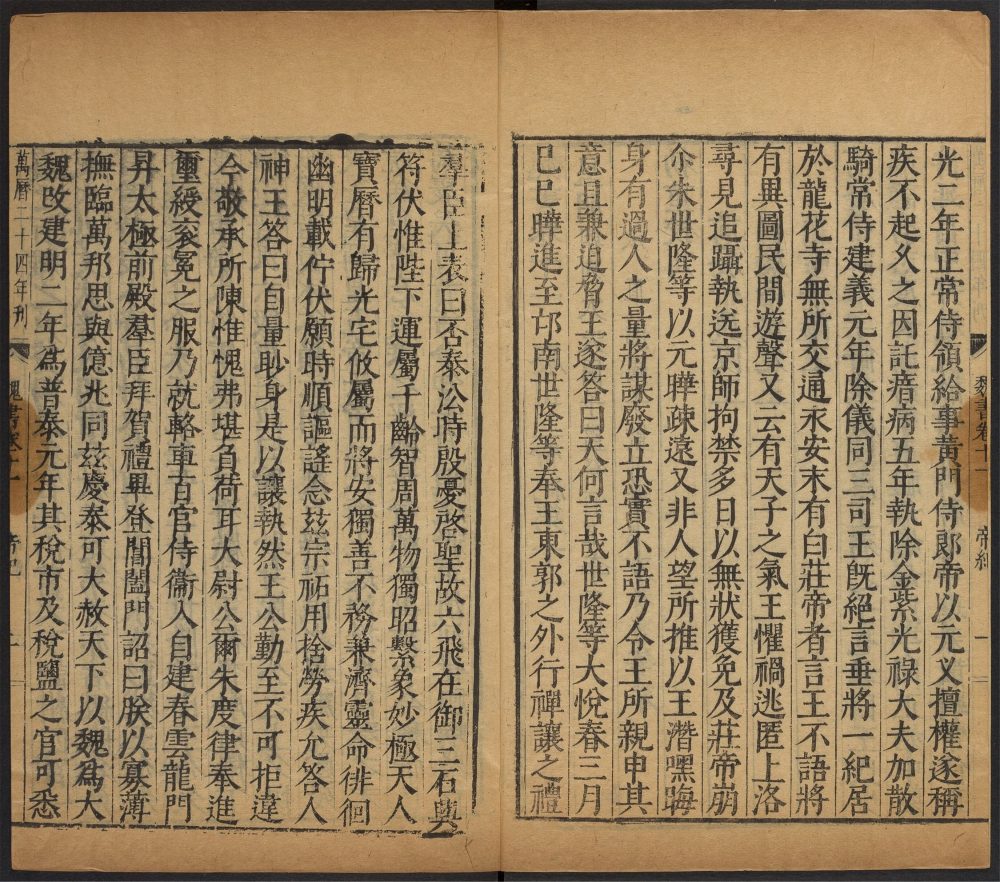 魏書卷十一 帝紀 一
光二年正常侍領給事黃門侍郎帝以元乂擅權遂稱
疾不起久之因託瘖病五年執除金紫光禄大夫加散
騎常侍建義元年除儀同三司王旣絕言垂將一紀居
於龍花寺無所交通永安末有白莊帝者言王不語將
有異圖民間遊聲又云有天子之氣王懼禍逃匿上洛
尋見追躡執送京師拘禁多日以無狀獲免及莊帝崩
尒朱世隆等以元曄疎遠又非人望所推以王潛嘿晦
身有過人之量將謀廢立恐實不語乃令王所親申其
意且兼迫脅王遂答曰天何言哉世隆等大悅春三月
己巳曄進至邙南世隆等奉王東郭之外行禪讓之禮
羣臣上表曰否泰㳂時殷憂啓聖故六飛在御三石興
符伏惟陛下運屬千齡智周萬物獨昭繫象妙極天人
寶曆有歸光宅攸屬而將安獨善不務兼濟靈命徘徊
幽明載佇伏願時順謳謠念茲宗祏用捨勞疾允答人
神王答曰自量眇身是以讓執然王公勤至不可拒違
今敬承所陳惟愧弗堪負荷耳大尉公爾朱度律奉進
璽綬衮冕之服乃就輅車百官侍衞入自建春雲龍門
昇太極前殿羣臣拜賀禮畢登閶闔門詔曰朕以寡薄
撫臨萬邦思與億兆同茲慶泰可大赦天下以魏爲大
魏改建明二年爲普泰元年其稅市及稅鹽之官可悉
萬曆二十四年刊 魏書卷十一 帝紀